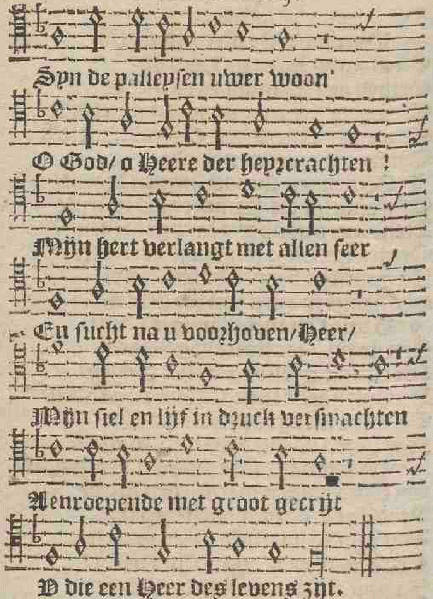 Syn de palleysen uwer woon'
O God/ o Heere der heyrcrachten !
Mijn hert verlangt met allen seer
En sucht na u voorhoven/Heer/
Mijn siel en lijf in druck versmachten
Aenroepende met groot gecrijt
V die een Heer des levens zijt.